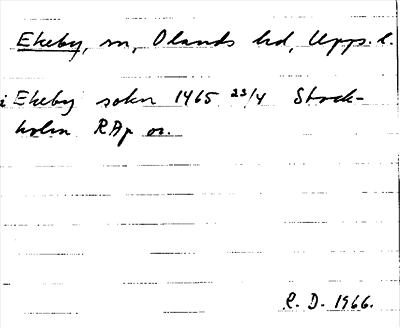 Ekeby, sn, Olands hd, Upps. l.
i Ekeby sokn 1465 23/4 Stock-
holm RAp or.
R. D. 1966.